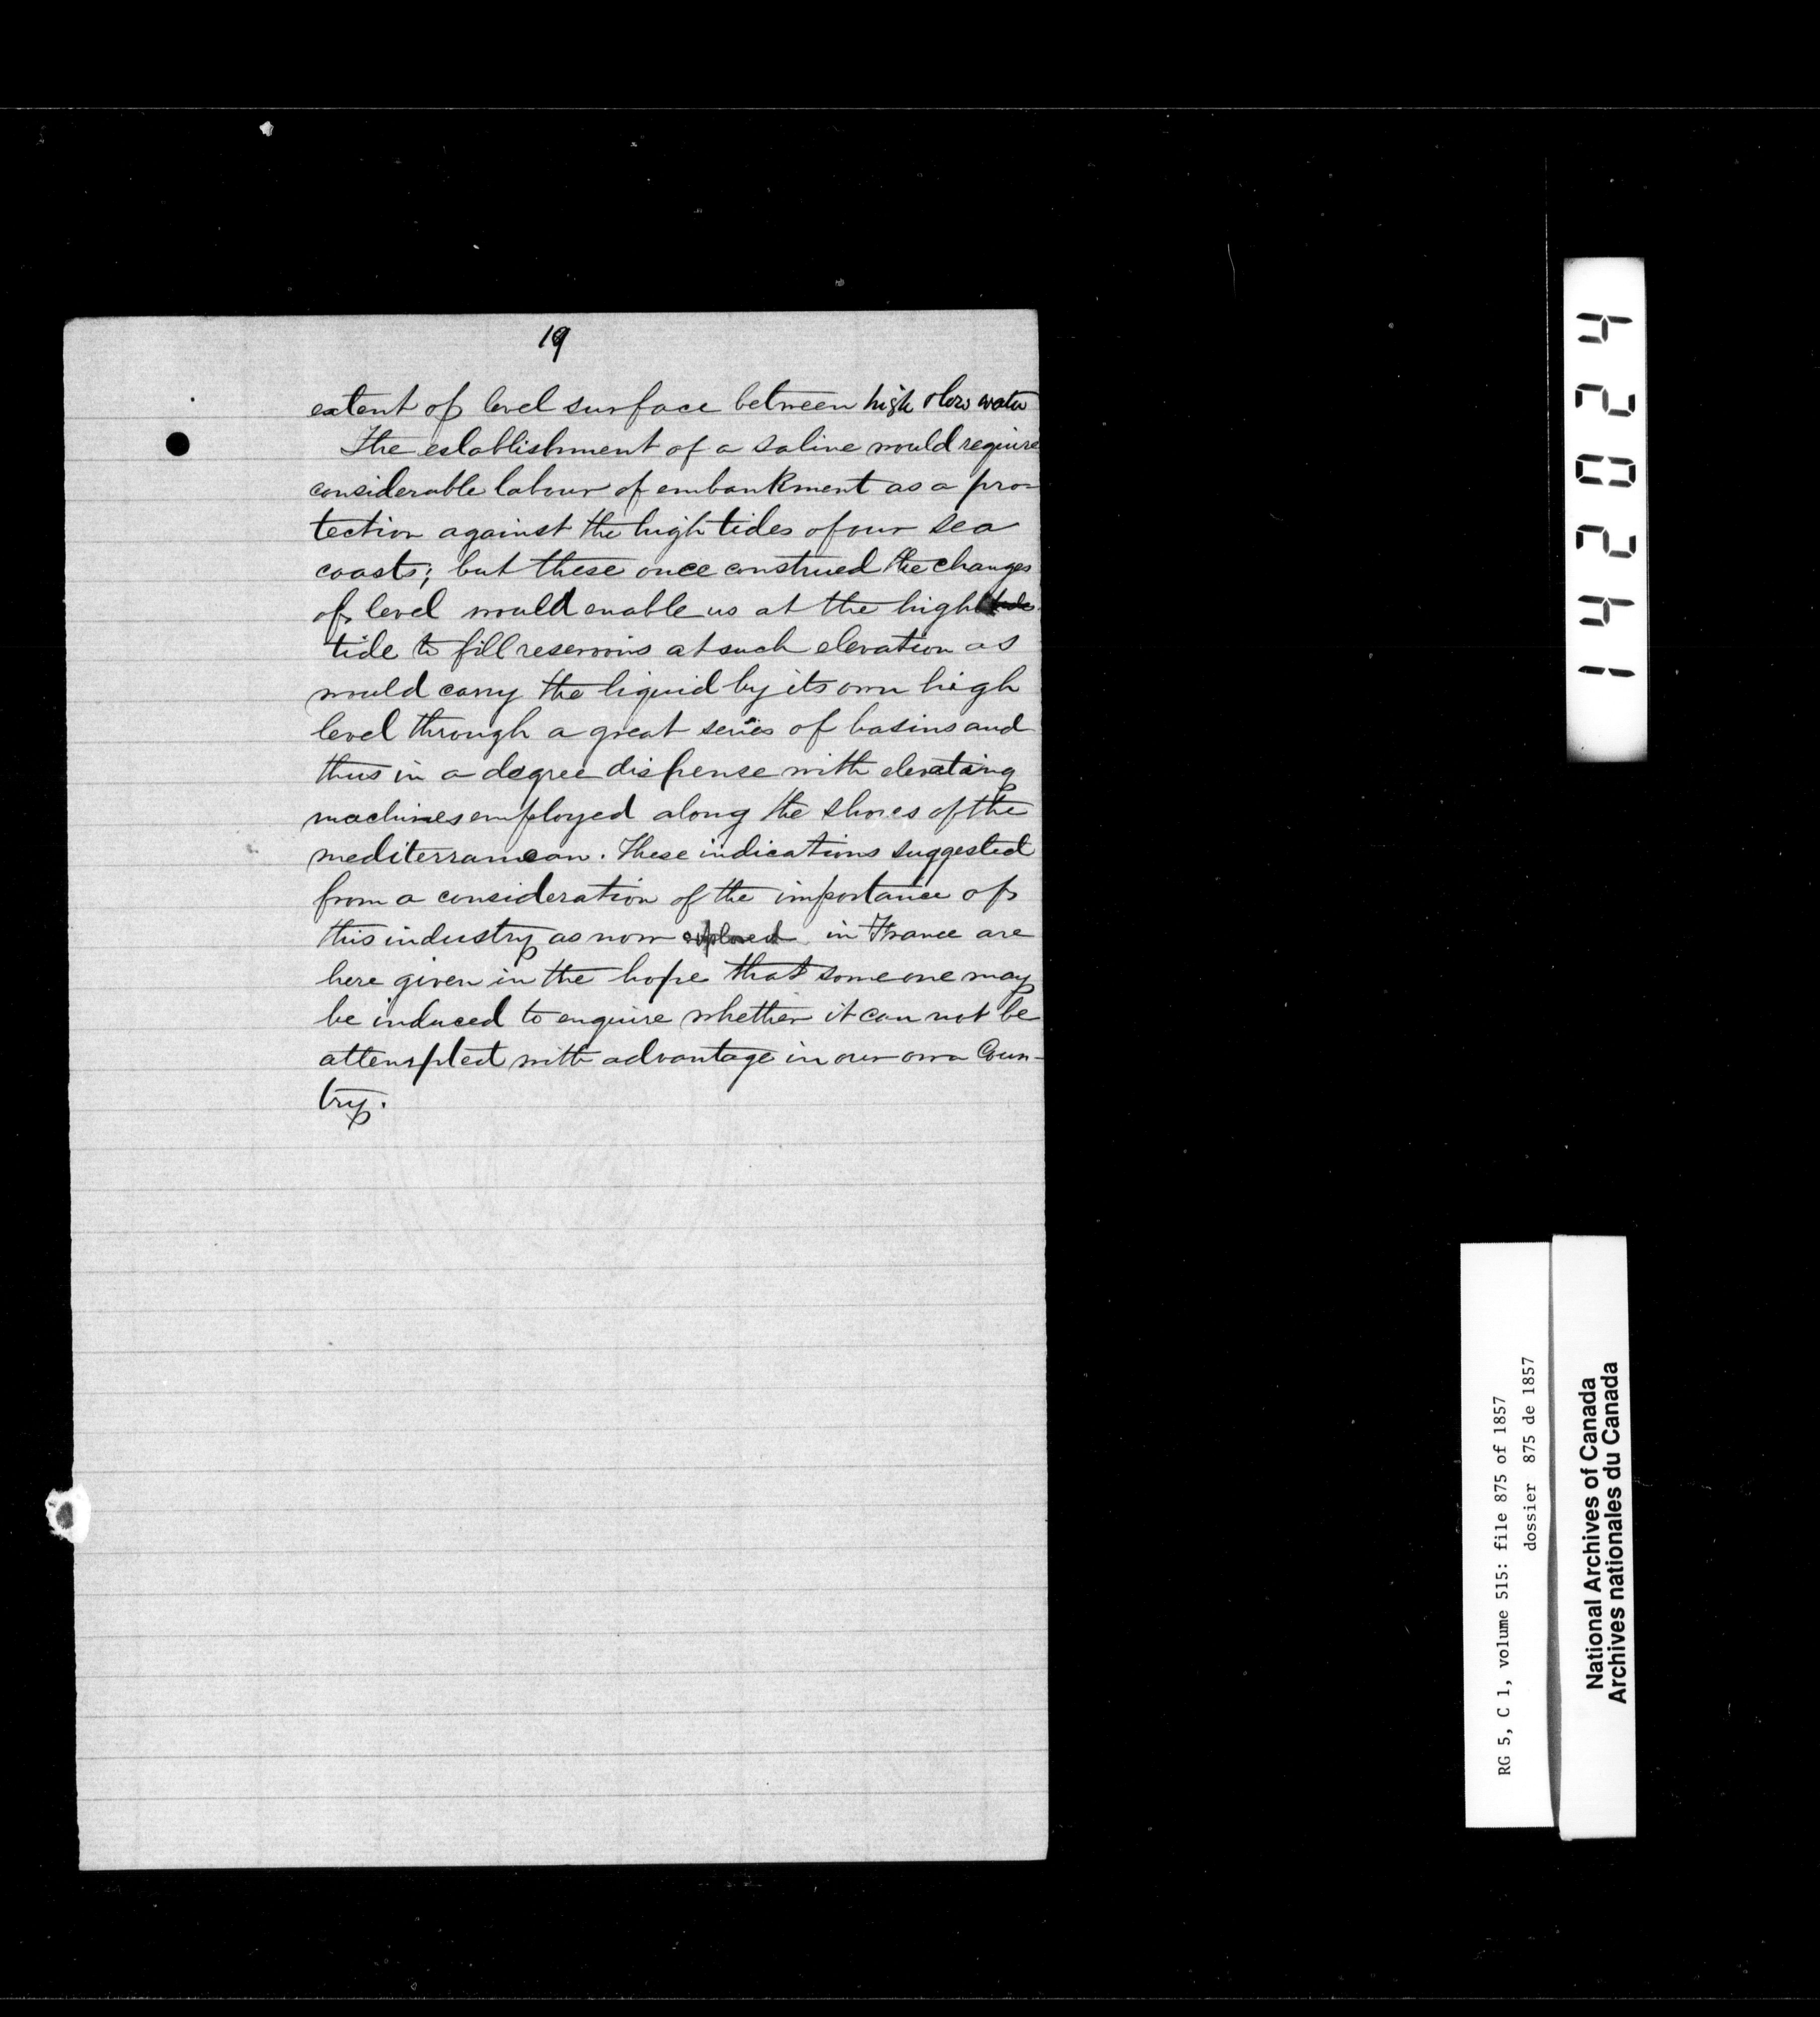 19
extent of level surface between high & low water
The establishment of a saline would require
considerable labour of embankment as a pro-
tection against the high tides of our sea
coasts; but these once construed the changes
of level would enable us at the high
tide to fill reservoirs at such elevation as
would carry the liquid by its own high
level through a great series of basins and
thus in a degree dispense with elevating
machines employed along the shores of the
mediterranean. These indications suggested
from a consideration of the importance of
this industry as now in France are
here given in the hope that some one may
be induced to enquire whether it can not be
attempted with advantage in our own Coun-
try.
142024
RG 5, C 1, volume 515: file 875 of 1857
dossier 875 de 1857
National Archives of Canada
Archives nationales du Canada